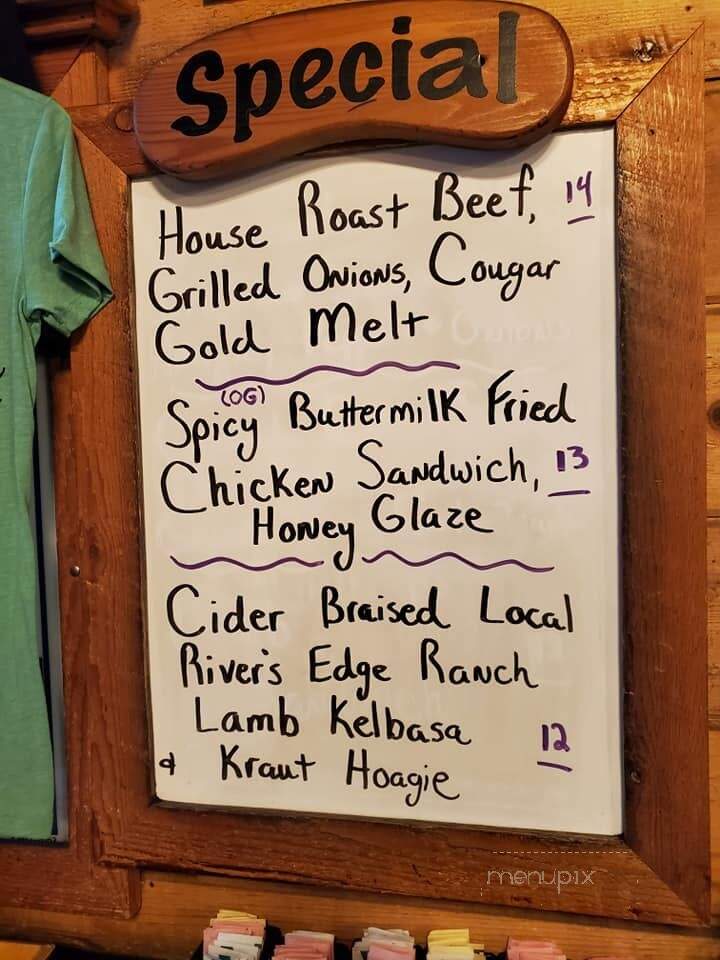 Special
House Roast Beef, 14
Grilled Onions, Cougar
Gold Melt
(OG)
Spicy Buttermilk Fried
Chicken Sandwich, 13
Honey Glaze
Cider Braised Local
River's Edge Ranch
Lamb Kelbasa 12
& Kraut Hoagie
menupix